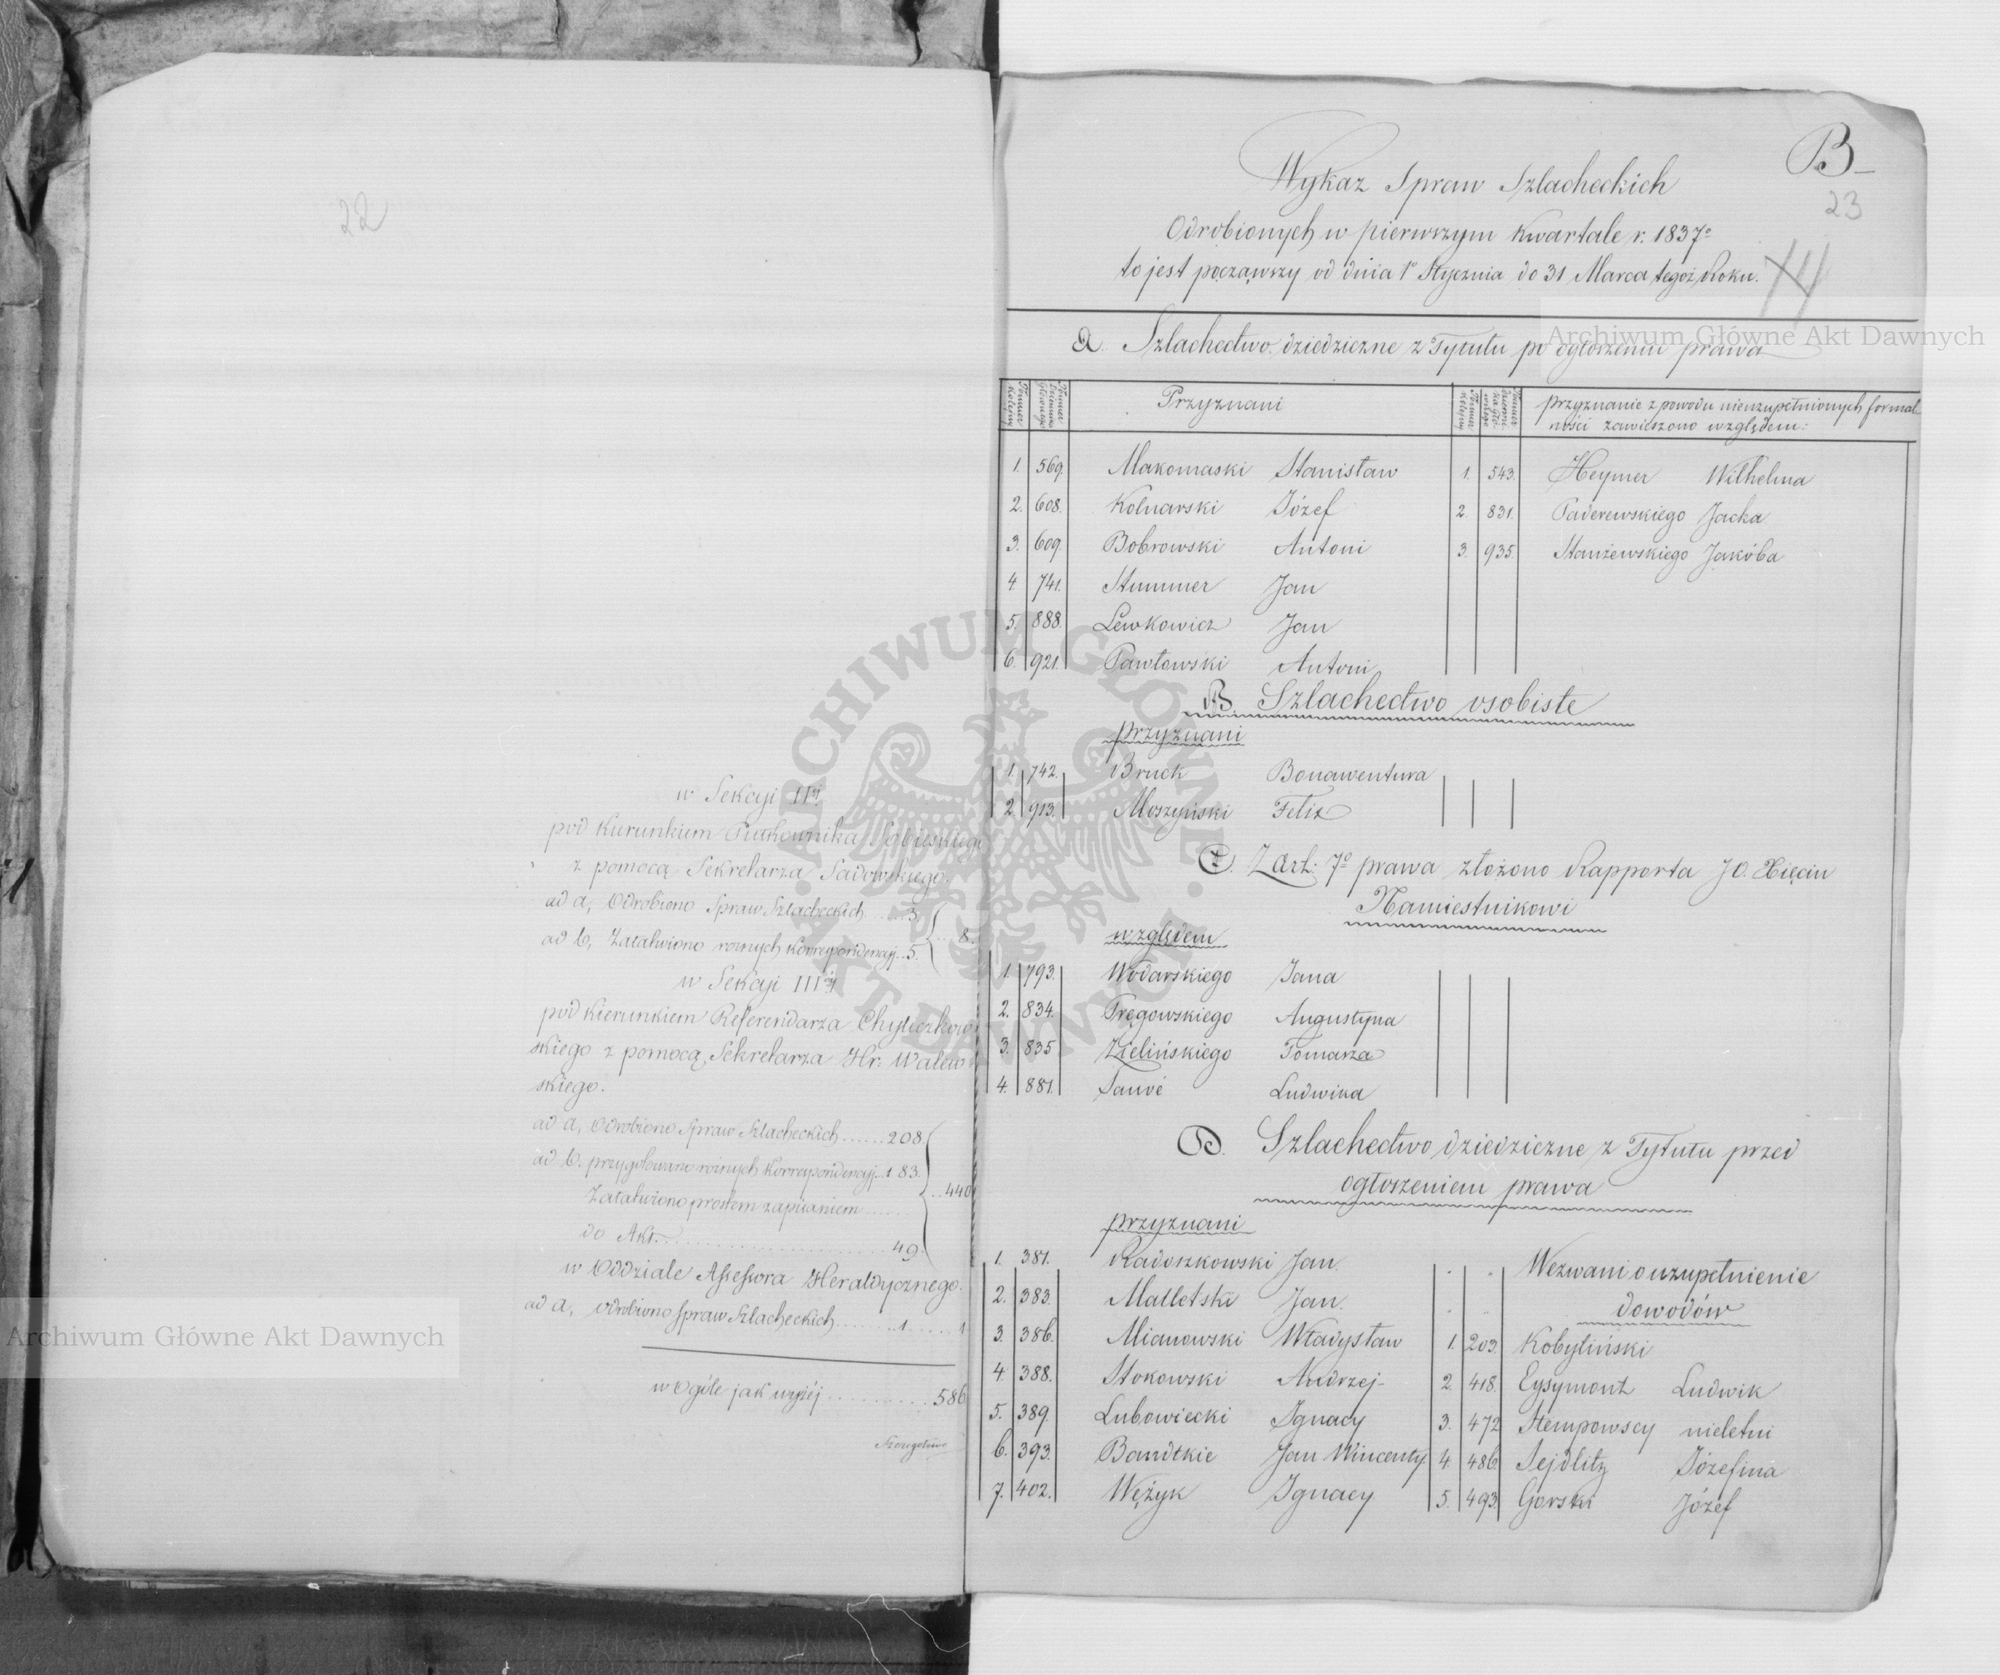 22
w Sekcyi IIéj
pod Kierunkiem Pułkownika Sobieskiego
z pomocą Sekretarza Sadowskiego.
ad a, Odrobiono Spraw Szlacheckich ...... 3.
ad b, Załatwiono różnych Korrespondencyj .. 5. ... 8.
w Sekcyi IIIéj
pod Kierunkiem Referendarza Chyliczkow-
skiego z pomocą Sekretarza Hr: Walew-
skiego.
ad a, Odrobiono Spraw Szlacheckich ...... 208
ad b. przygotowano różnych Korrespondencyj .. 183.
Załatwiono prostem zapisaniem ...... ... 440
do Akt. .......................... 49.
w Oddziale Assessora Heraldycznego.
ad a, odrobiono spraw Szlacheckich ........ 1 ..... 1
w Ogóle jak wyżéj ............ 586
Szczegółowo
B
23
Wykaz Spraw Szlacheckich
Odrobionych w pierwszym Kwartale r. 1837º
to jest począwszy od dnia 1º Stycznia do 31 Marca tegoż Roku.
A. Szlachectwo dziedziczne z Tytułu po ogłoszeniu prawa
Numer Kolejny Numer Dziennika Głównego Przyznani Numer Kolejny Numer Dzienni- ka głó- wnego przyznanie z powodu nieuzupełnionych formal-
ności zawieszono względem:
1. 569. Makomaski Stanisław 1. 543. Heymer Wilhelma
2. 608. Kolnarski Józef 2. 831. Paderewskiego Jacka
3. 609. Bobrowski Antoni 3. 935 Staniżewskiego Jakóba
4. 741. Stummer Jan
5. 888. Lewkowicz Jan
6. 921. Pawłowski Antoni
B. Szlachectwo osobiste
przyznani
1. 742. Bruck Bonawentura
2. 913. Moszyński Felix
C. Z art: 7º prawa złożono Rapporta JO. Xięciu
Namiestnikowi
względem
1. 793. Wodarskiego Jana
2. 834. Pręgowskiego Augustyna
3. 835 Zielińskiego Tomasza
4. 881. Sauvé Ludwika
D. Szlachectwo dziedziczne z Tytułu przed
ogłoszeniem prawa
przyznani
1. 381. Radoszkowski Jan. Wezwani o uzupełnienie
2. 383. Malletski Jan. dowodów
3. 386. Mianowski Władysław 1. 203. Kobyliński
4. 388. Stokowski Andrzej 2. 418. Eysymont Ludwik
5. 389. Lubowiecki Ignacy 3. 472 Stempowscy nieletni
6. 393. Bandtkie Jan Wincenty 4. 486. Sejdlitz Józefina
7. 402. Wężyk Ignacy 5. 493. Gorski Józef
Archiwum Główne Akt Dawnych
Archiwum Główne Akt Dawnych
ARCHIWUM GŁÓWNE AKT DAWNYCH